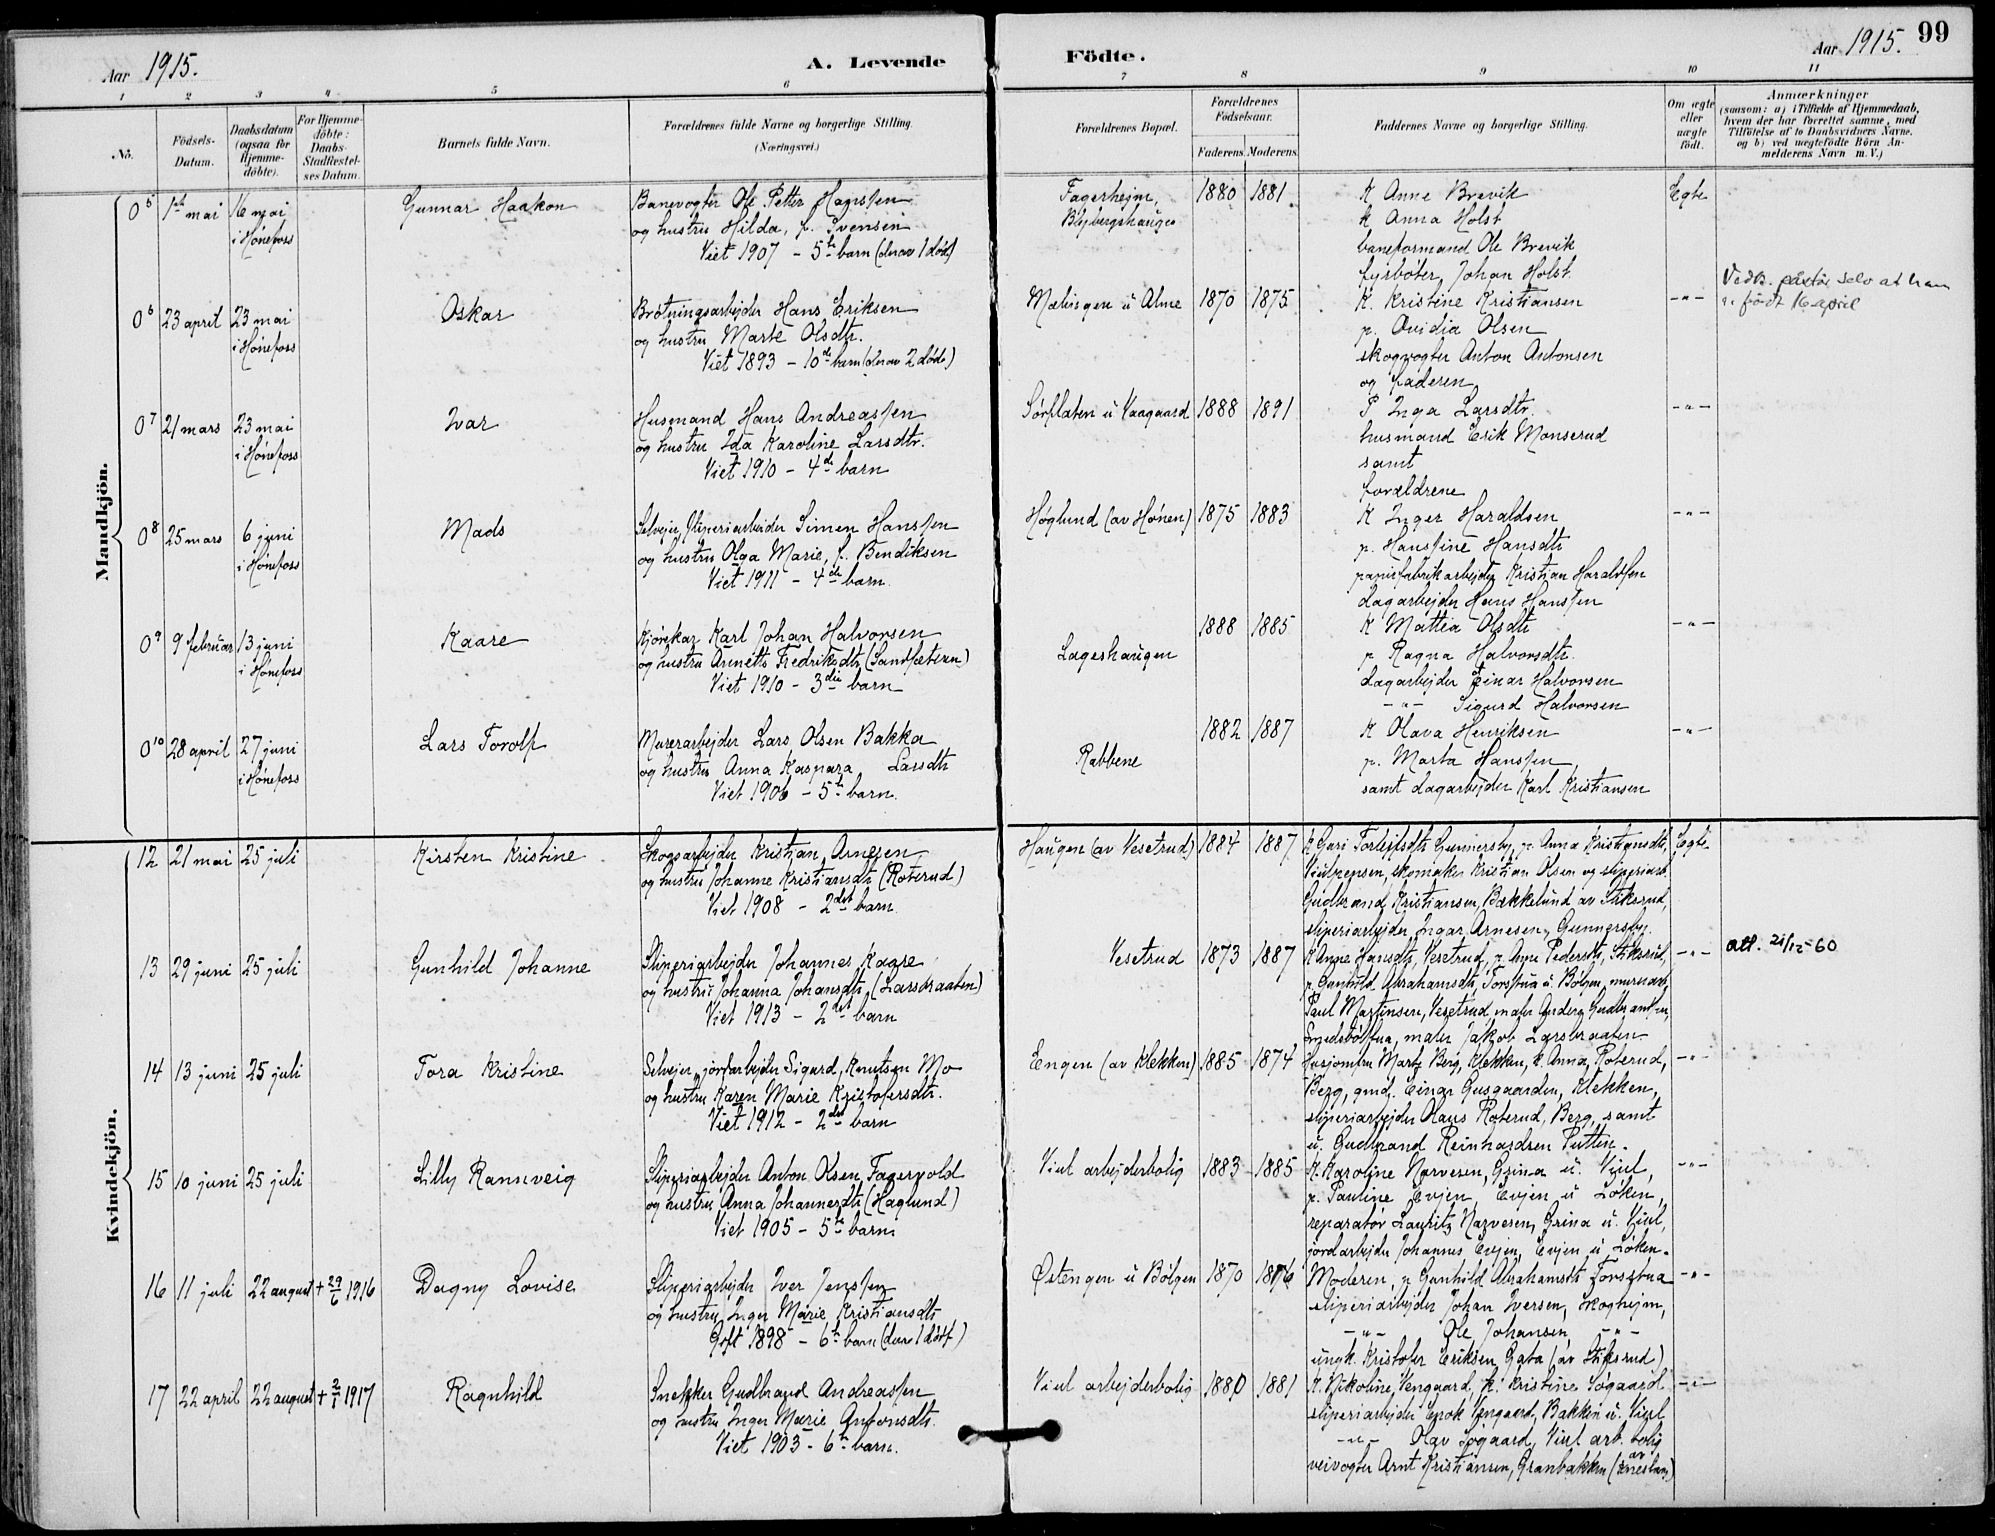 Aar 1915.
A. Levende
Födte.
Aar 1915.
99
1 2 3 4 5 6 7 8 9 10 11
No.
Födsels-Datum.
Daabsdatum (ogsaa for Hjemme-döbte).
For Hjemme-döbte: Daabs-Stadfæstel-ses Datum.
Barnets fulde Navn.
Forældrenes fulde Navne og borgerlige Stilling. (Næringsvei.)
Forældrenes Bopæl.
Forældrenes Födselsaar.
Faderens. Moderens.
Faddernes Navne og borgerlige Stilling.
Om ægte eller uægte födt.
Anmærkninger
(saasom: a) i Tilfælde af Hjemmedaab, hvem der har forrettet samme, med Tilföielse af to Daabsvidners Navne, og b) ved uegtefödte Börn An-melderens Navn m. V.)
Mandkjön.
0 5 1ste mai 16 mai i Hönefoss
Gunnar Haakon
Banevogter Ole Petter Hanssen
og hustru Hilda, f. Svensen
Viet 1907 - 5te barn (derav 1 död)
Fagerhejm,
1880 1881
K Anne Brevik
K Anna Holst
baneformand Ole Brevik
fyrböter, Johan Holst
Egte
0 6 23 april 23 mai i Hönefoss
Oskar
Brötningsarbejder Hans Eriksen
og hustru Marte Olsdtr.
Viet 1893 - 10de barn (derav 2 döde)
Mælingen u Alme 1870 1875
K. Kristine Kristiansen
p. Ovidia Olsen
skogvogter Anton Antonsen
og faderen
-"-
selv at han
födt 16 april
0 7 21 mars 23 mai i Hönefoss
Ivar
Husmand Hans Andreassen
og hustru Ida Karoline Larsdtr.
Viet 1910 - 4de barn
Sörflaten u Vaagaard 1888 1891
P Inga Larsdtr.
husmand Erik Monserud
samt
forældrene
-"-
0 8 25 mars 6 juni i Hönefoss
Mads
Selvejer, sliperiarbeider Simen Hanssen
og hustru Olga Marie, f. Bendiksen
Viet 1911 - 4de barn.
Höglund (av Hönen) 1875 1883
K Inger Haraldsen
p. Hanssine Hansdtr
papirfabrikarbejder Kristian Haraldsen
dagarbejder Hans Hanssen
-"-
0 9 9 februar 13 juni i Hönefoss
Kaare
Kjörekar Karl Johan Halvorsen
og hustru Annette Fredriksdtr (Sandsætern)
Viet 1910 - 3die barn
Lageshaugen
1888 1885
K Mattea Olsdtr
p Ragna Halvorsdtr.
dagarbejder Einar Halvorsen
-"- Sigurd Halvorsen
-"-
0 10 28 april 27 juni i Hönefoss
Lars Torolf
Murerarbejder Lars Olsen Bakka
og hustru Anna Kaspara Larsdtr
Viet 1906 - 5te barn.
Rabbene
1882 1887
K Olava Henriksen
p. Marta Hanssen,
samt dagarbejder Karl Kristiansen
-"-
Kvindekjön.
12 21 mai 25 juli
Kirsten Kristine
Skogsarbejder Kristian Arnesen
og hustru Johanne Kristiansdtr (Roterud)
Viet 1908 - 2det barn.
Haugen (av Vesetrud) 1884 1887
K Guri Torleifsdtr Gunnersby, p. Anna Kristiansdtr,
skomaker Kristian Olsen og sliperiarb.
Gudbrand Kristiansen, Bækkelund av Stiksrud,
sliperiarbejder Ingar Arnesen, Gunnersby.
Egte
13 29 juni 25 juli
Gunhild Johanne
Sliperiarbejder Johannes Kaare
og hustru Johanna Johansdtr (Larsbraaten)
Viet 1913 - 2det barn
Vesetrud 1873 1887
K Anne Hansdtr, Vesetrud, p. Anne Pedersdtr, Stiksrud,
p. Gunhild Abrahamsdtr, Forsstua u. Bölgen, murerarb.
Paul Martinsen, Vesetrud, maler Anders Gudbrandsen,
maler Jakob Larsbraaten
-"-
att. 21/12-60
14 13 juni 25 juli
Tora Kristine
Selvejer, jordarbejder Sigurd Knutsen Mo
og hustru Karen Marie Kristofersdtr.
Viet 1912 - 2det barn
Engen (av Klekken) 1885 1874
Husjomfru Marte Berg, Klekken, k. Anna Roterud,
Berg, gmd. Einar Gusgaarden, Klekken,
sliperiarbejder Olaus Roterud, Berg, samt
u. Gudbrand Reinhardsen Putten.
-"-
15 10 juni 25 juli
Lilly Rannveig
Sliperiarbejder Anton Olsen Fagervold
og hustru Anna Johannesdtr (Haglund)
Viet 1905 - 5te barn
Viul arbejderbolig 1883 1885
K. Karoline Narvesen, Grina u. Viul,
p. Pauline Evjen, Evjen u Löken,
reparatör Lauritz Narvesen, Grina u. Viul,
jordarbejder Johannes Evjen, Evjen u Löken.
-"-
16 11 juli 22 august + 29/6 1916
Dagny Lovise
Sliperiarbejder Iver Jenssen
og hustru Inger Marie Kristiansdtr
Gift 1898 - 6te barn (derav 1 död)
Östengen u Bölgen 1870 1876
Moderen, p Gunhild Abrahamsdtr Forsstua
sliperiarbejder Johan Iversen, Skoghejm,
-"- Ole Johansen, -"-
ungk. Kristofer Eriksen Gata (av Stiksrud)
-"-
17 22 april 22 august + 2/1 1917
Ragnhild
Snekker Gudbrand Andreassen
og hustru Inger Marie Antonsdtr.
Viet 1903 - 6te barn.
Viul arbejderbolig 1880 1881
K. Nikoline Vengaard, K. Kristine Sögaard
sliperiarbejder Enok Vengaard, Bakken u. Viul
-"- Olav Sögaard, Viul arb. bolig
veivogter Arnt Kristiansen, Granbakken
-"-